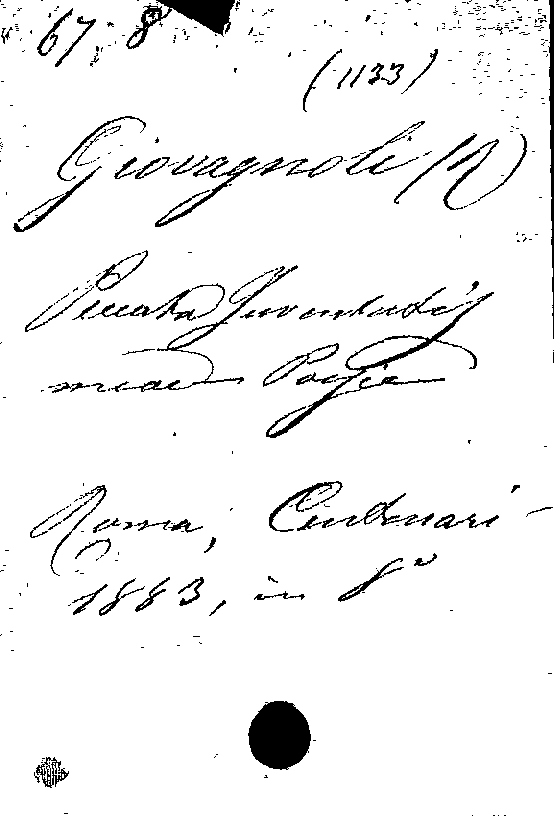 67. 8
(1133)
Giovagnoli (R)
Peccata Juventutis
meae Poesie
Roma, Centenari
1883, in 8º